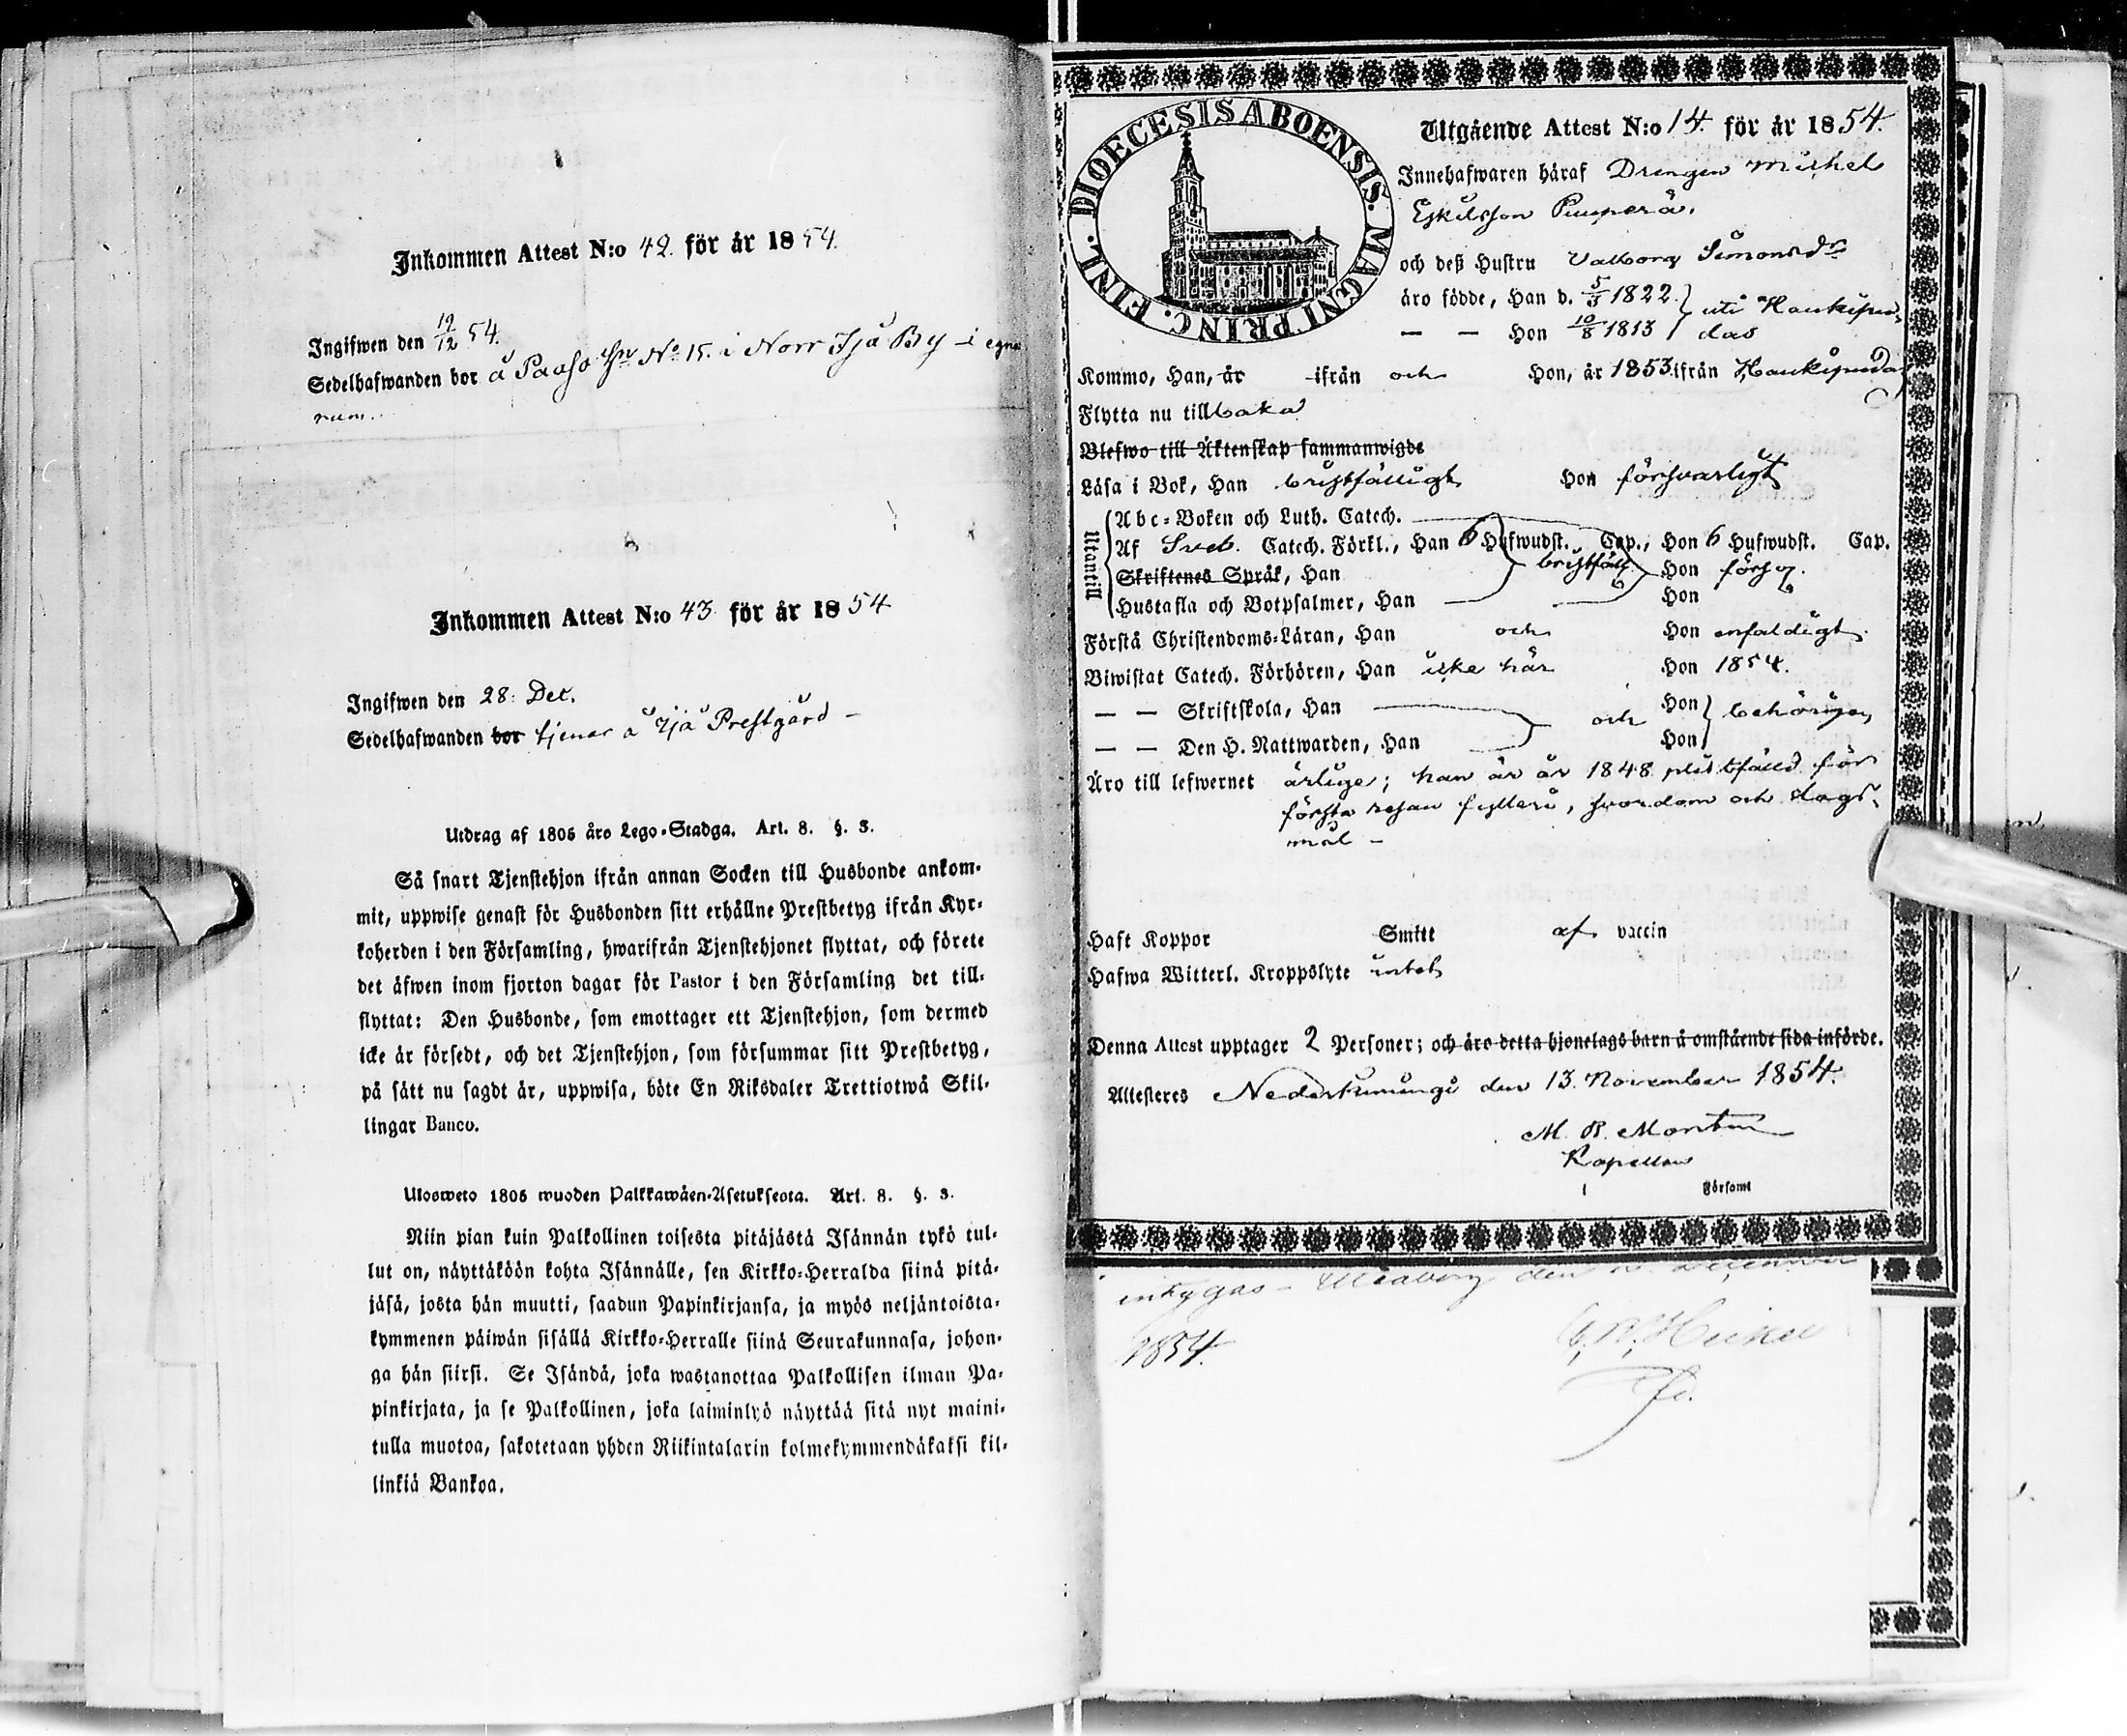 Inkommen Attest N:o 42. för år 1854.
Ingifwen den 19/12 54.
Sedelhafwanden bor å Paaso hn No 15. i Norr Ijå By - i egna
rum.
Inkommen Attest N:o 43 för år 1854
Ingifwen den 28. Dec.
Sedelhafwanden bor tjenar å Ijå Prestgård -
Utdrag af 1805 års Lego-Stadga. Art. 8. §. 3.
Så snart Tjenstehjon ifrån annan Socken till Husbonde ankom-
mit, uppwise genast för Husbonden sitt erhållne Prestbetyg ifrån Kyr-
koherden i den Församling, hwarifrån Tjenstehjonet flyttat, och förete
det äfwen inom fjorton dagar för Pastor i den Församling det till-
flyttat: Den Husbonde, som emottager ett Tjenstehjon, som dermed
icke är försedt, och det Tjenstehjon, som försummar sitt Prestbetyg,
på sätt nu sagdt är, uppwisa, böte En Riksdaler Trettiotwå Skil-
lingar Banco.
Ulosweto 1805 wuoden Palkkawäen-Asetuksesta. Art. 8. §. 3.
Niin pian kuin Palkollinen toisesta pitäjästä Isännän tykö tul-
lut on, näyttäköön kohta Isännälle, sen Kirkko-Herralda siinä pitä-
jäsä, josta hän muutti, saadun Papinkirjansa, ja myös neljäntoista-
kymmenen päiwän sisällä Kirkko-Herralle siinä Seurakunnasa, johon-
ga hän siirsi. Se Isändä, joka wastanottaa Palkollisen ilman Pa-
pinkirjata, ja se Palkollinen, joka laiminlyö näyttää sitä nyt maini-
tulla muotoa, sakotetaan yhden Riikintalarin kolmekymmendäkaksi kil-
linkiä Bankoa.
DIOECESIS ABOENSIS. MAGNI PRINC. FINL.
Utgående Attest N:o 14. för år 1854.
Innehafwaren häraf Drengen Michel
Eskilsson Puuperä.
och deß Hustru Valborg Simonsdr
äro födde, Han d. 5/5 1822. } uti Haukipu-
— — Hon 10/8 1813 } das
Kommo, Han, år ifrån och Hon, år 1853 ifrån Haukipudas
Flytta nu tillbaka
Blefwo till Äktenskap sammanwigde
Läsa i Bok, Han bristfälligt Hon försvarligt
Utantill
Abc-Boken och Luth. Catech.
Af Sveb. Catech. Förkl., Han 6 Hufwudst. Cap., Hon 6 Hufwudst. Cap.
Skriftenes Språk, Han bristfäll Hon försv.
Hustafla och Botpsalmer, Han Hon
Förstå Christendoms-Läran, Han och Hon enfaldigt
Biwistat Catech. Förhören, Han icke här Hon 1854.
— — Skriftskola, Han och Hon behörigen
— — Den H. Nattwarden, Han Hon
Äro till lefwernet ärliga; han är år 1848 pliktfälld för
första resan fylleri, svordom och slags-
mål -
Haft Koppor Smitt af vaccin
Hafwa Witterl. Kroppslyte intet
Denna Attest upptager 2 Personer; och äro detta hjonelags barn å omstående sida införde.
Attesteres Nederkiminge den 13. November 1854.
M. R.
Kapellan
i Församl
intygas - Uleåborg den December
1854.